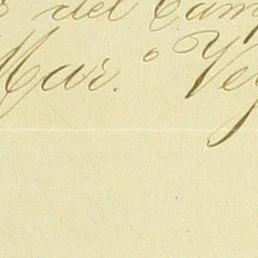 del Cam
Mar.° Ve